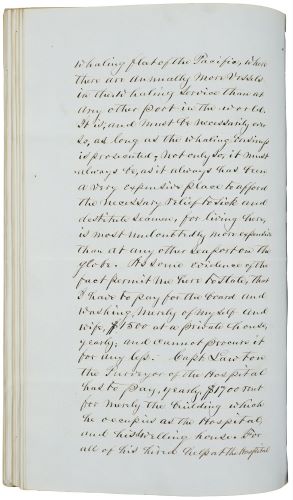 whaling fleet of the Pacific, where
there are annually more vessels
in the Whaling service than at
any other port in the world.
It is, and must be necessarily ever
so, as long as the whaling business
is prosecuted; not only so, it must
always be, as it always has been
a very expensive place to afford
the necessary relief to sick and
destitute seamen, for living here,
is most undoubtedly more expensive
than at any other seaport on the
globe. As some evidence of the
fact permit me here to state, that
I have to pay for the board and
washing, merely of myself and
wife, $1500 at a private house,
yearly, and cannot procure it
for any less. Capt. Lawton
the Surveyor of the Hospital
has to pay, yearly $1700 rent
for merely the building which
he occupies as the Hospital,
and his dwelling house. For
all of his hired help at the Hospital